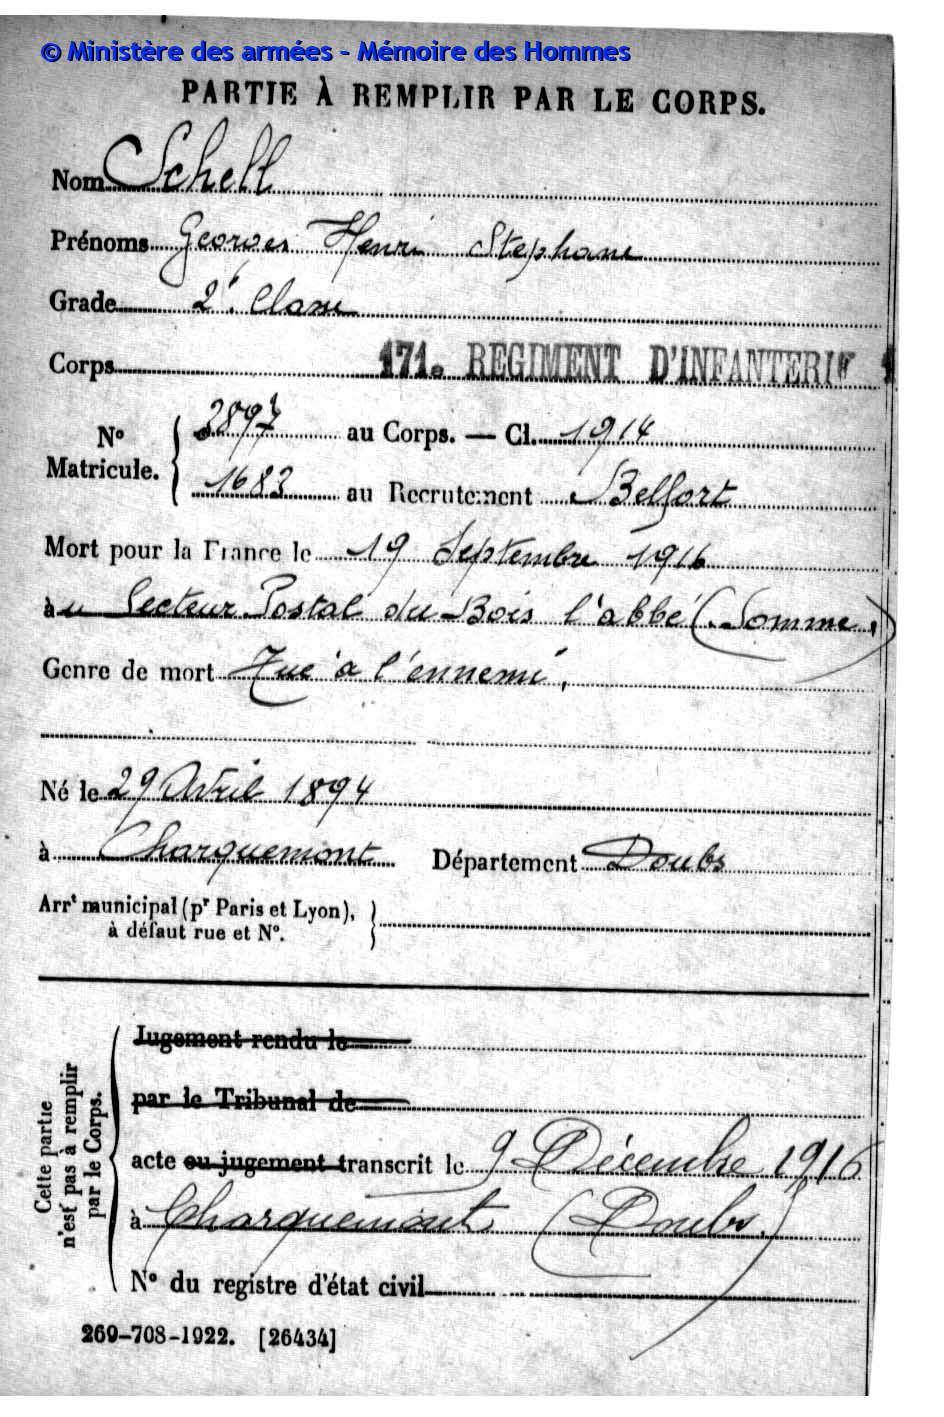 © Ministère des armées - Mémoire des Hommes
PARTIE À REMPLIR PAR LE CORPS.
Nom Schell
Prénoms Georges Henri Stephane
Grade 2e Classe
Corps 171e REGIMENT D'INFANTERIE
No Matricule. 2897 au Corps. — Cl. 1914
1683 au Recrutement Belfort
Mort pour la France le 19 Septembre 1916
au Secteur Postal du Bois l'abbé (Somme)
Genre de mort Tué à l'ennemi.
Né le 29 Avril 1894
à Charquemont Département Doubs
Arrt municipal (pr Paris et Lyon),
à défaut rue et No.
Cette partie
n'est pas à remplir
par le Corps.
Jugement rendu le
par le Tribunal de
acte ou jugement transcrit le 9 Décembre 1916
à Charquemont (Doubs)
No du registre d'état civil
269-708-1922. [26434]